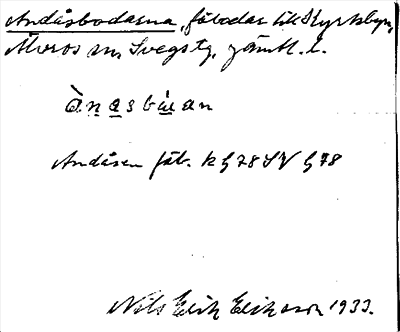 Andåsbodarna, fäbodar till Kyrkbyn,
Älvros sn, Svegs tg, Jämtl. l.
ànasbùan
Andåsen fäb. k G 78 SV G 78
Nils Erik Eriksson 1933.